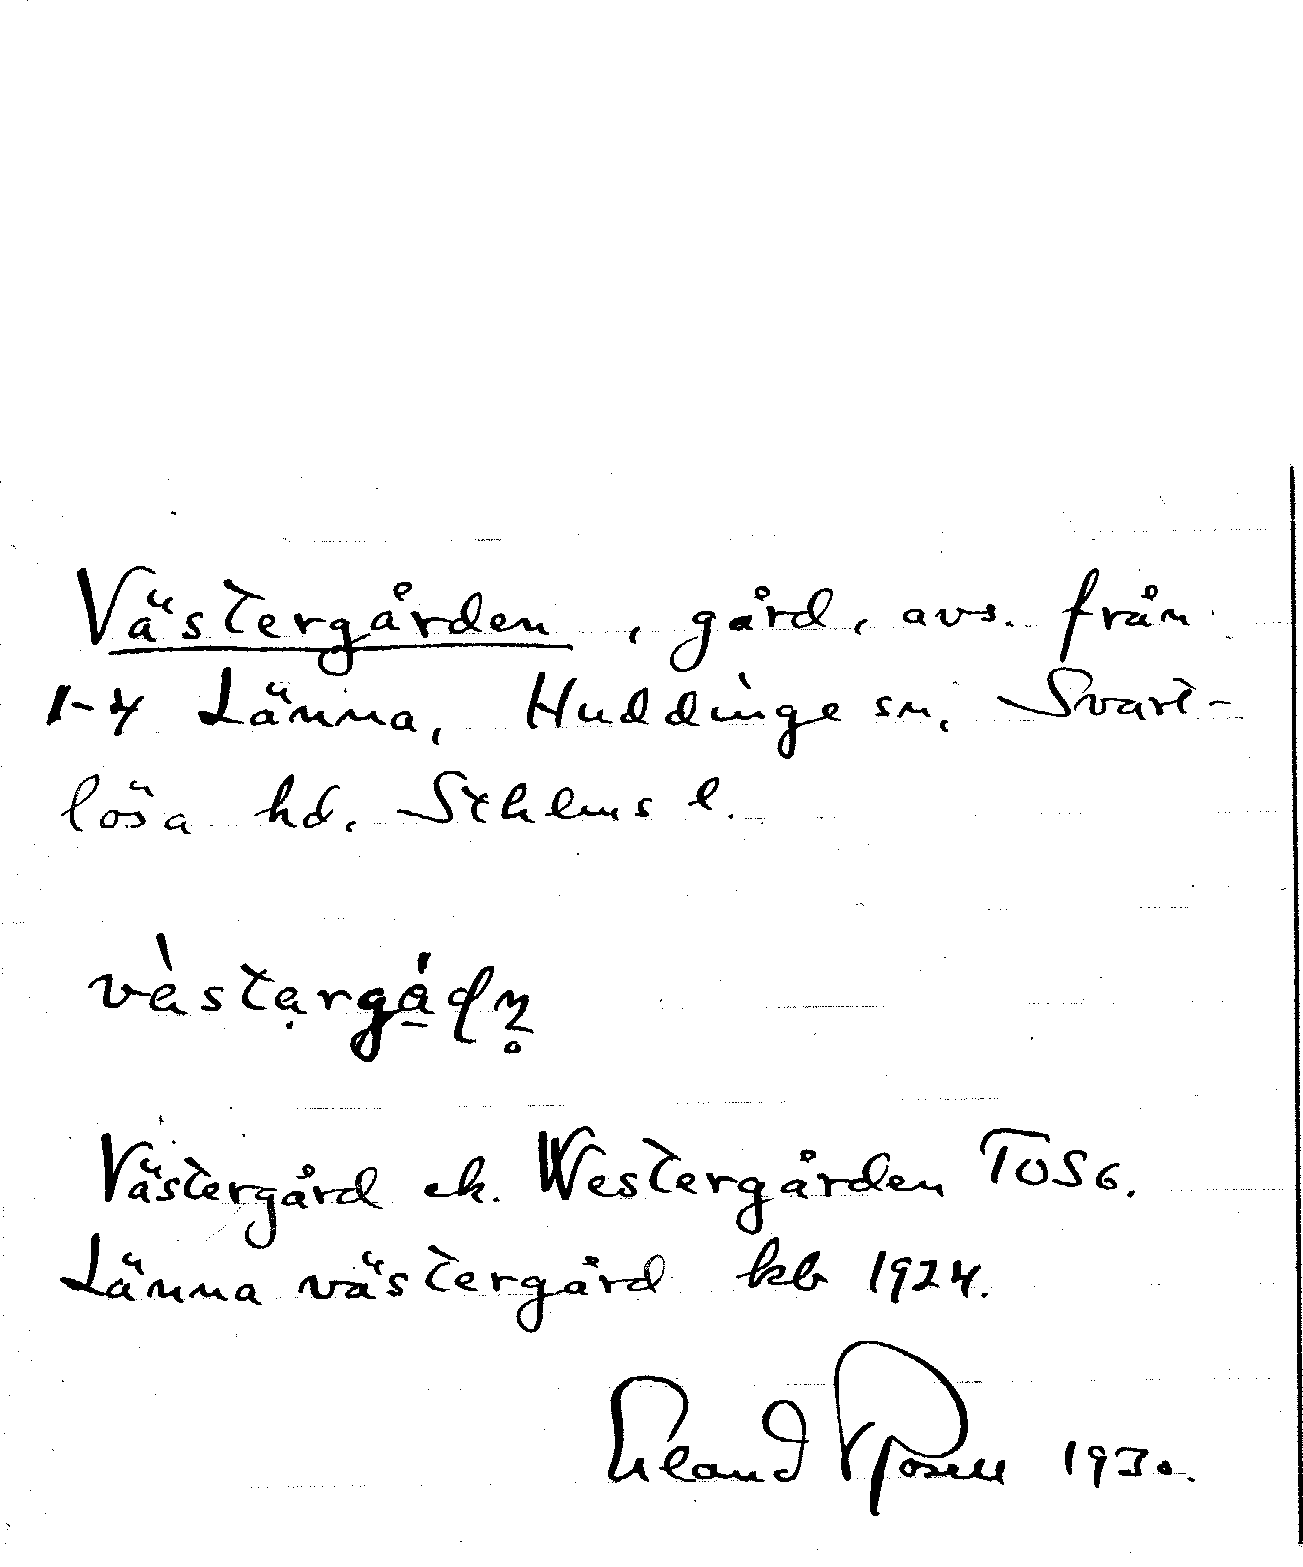 Västergården, gård, avs. från
1-4 Länna, Huddinge sn, Svart-
lösa hd. Sthlms l.
vàstạrgá̱dn̥
Västergård ek. Westergården TOS6.
Länna västergård kb 1924.
Erland Rosell 1930.